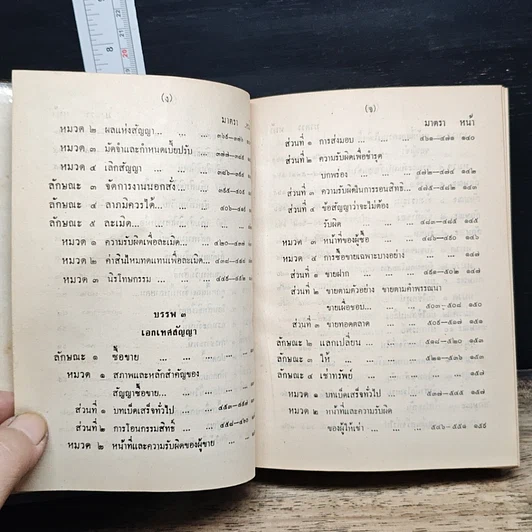 (ง)
มาตรา
หมวด ๒ ผลแห่งสัญญา... ... ... ๓๖๙—๓๗๖
หมวด ๓ มัดจำและกำหนดเบี้ยปรับ ... ๓๗๗—
หมวด ๔ เลิกสัญญา ... ... ...
ลักษณะ ๓ จัดการงานนอกสั่ง... ... ...
ลักษณะ ๔ ลาภมิควรได้... ... ... ๔๐๖—
ลักษณะ ๕ ละเมิด... ... ... ...
หมวด ๑ ความรับผิดเพื่อละเมิด... ...
หมวด ๒ ค่าสินไหมทดแทนเพื่อละเมิด...
หมวด ๓ นิรโทษกรรม ... ... ... ๔๔๙—๔๕๒
บรรพ ๓
เอกเทศสัญญา
ลักษณะ ๑ ซื้อขาย ... ... ... ...
หมวด ๑ สภาพและหลักสำคัญของ
สัญญาซื้อขาย... ... ...
ส่วนที่ ๑ บทเบ็ดเสร็จทั่วไป... ... ๔๕๓—๔๕๗
ส่วนที่ ๒ การโอนกรรมสิทธิ์ ... ... ๔๕๘—๔๖๐
หมวด ๒ หน้าที่และความรับผิดของผู้ขาย ...
(จ)
มาตรา หน้า
ส่วนที่ ๑ การส่งมอบ ... ... ... ๔๖๑—๔๗๑ ๑๔๐
ส่วนที่ ๒ ความรับผิดเพื่อชำรุด
บกพร่อง ... ... ... ๔๗๒—๔๗๔ ๑๔๒
ส่วนที่ ๓ ความรับผิดในการรอนสิทธิ... ๔๗๕—๔๘๒ ๑๔๓
ส่วนที่ ๔ ข้อสัญญาว่าจะไม่ต้อง
รับผิด ... ... ... ๔๘๓—๔๘๕ ๑๔๕
หมวด ๓ หน้าที่ของผู้ซื้อ ... ... ๔๘๖—๔๙๐ ๑๔๖
หมวด ๔ การซื้อขายเฉพาะบางอย่าง ... ๑๔๗
ส่วนที่ ๑ ขายฝาก ... ... ... ๔๙๑—๕๐๒ ๑๔๗
ส่วนที่ ๒ ขายตามตัวอย่าง ขายตามคำพรรณนา
ขายเผื่อชอบ... ... ... ๕๐๓—๕๐๘ ๑๕๐
ส่วนที่ ๓ ขายทอดตลาด ... ... ๕๐๙—๕๑๗ ๑๕๑
ลักษณะ ๒ แลกเปลี่ยน ... ... ... ๕๑๘—๕๒๐ ๑๕๓
ลักษณะ ๓ ให้ ... ... ... ... ๕๒๑—๕๓๖ ๑๕๓
ลักษณะ ๔ เช่าทรัพย์ ... ... ... ... ๑๕๗
หมวด ๑ บทเบ็ดเสร็จทั่วไป... ... ๕๓๗—๕๔๕ ๑๕๗
หมวด ๒ หน้าที่และความรับผิด
ของผู้ให้เช่า ... ... ... ๕๔๖—๕๕๑ ๑๕๙